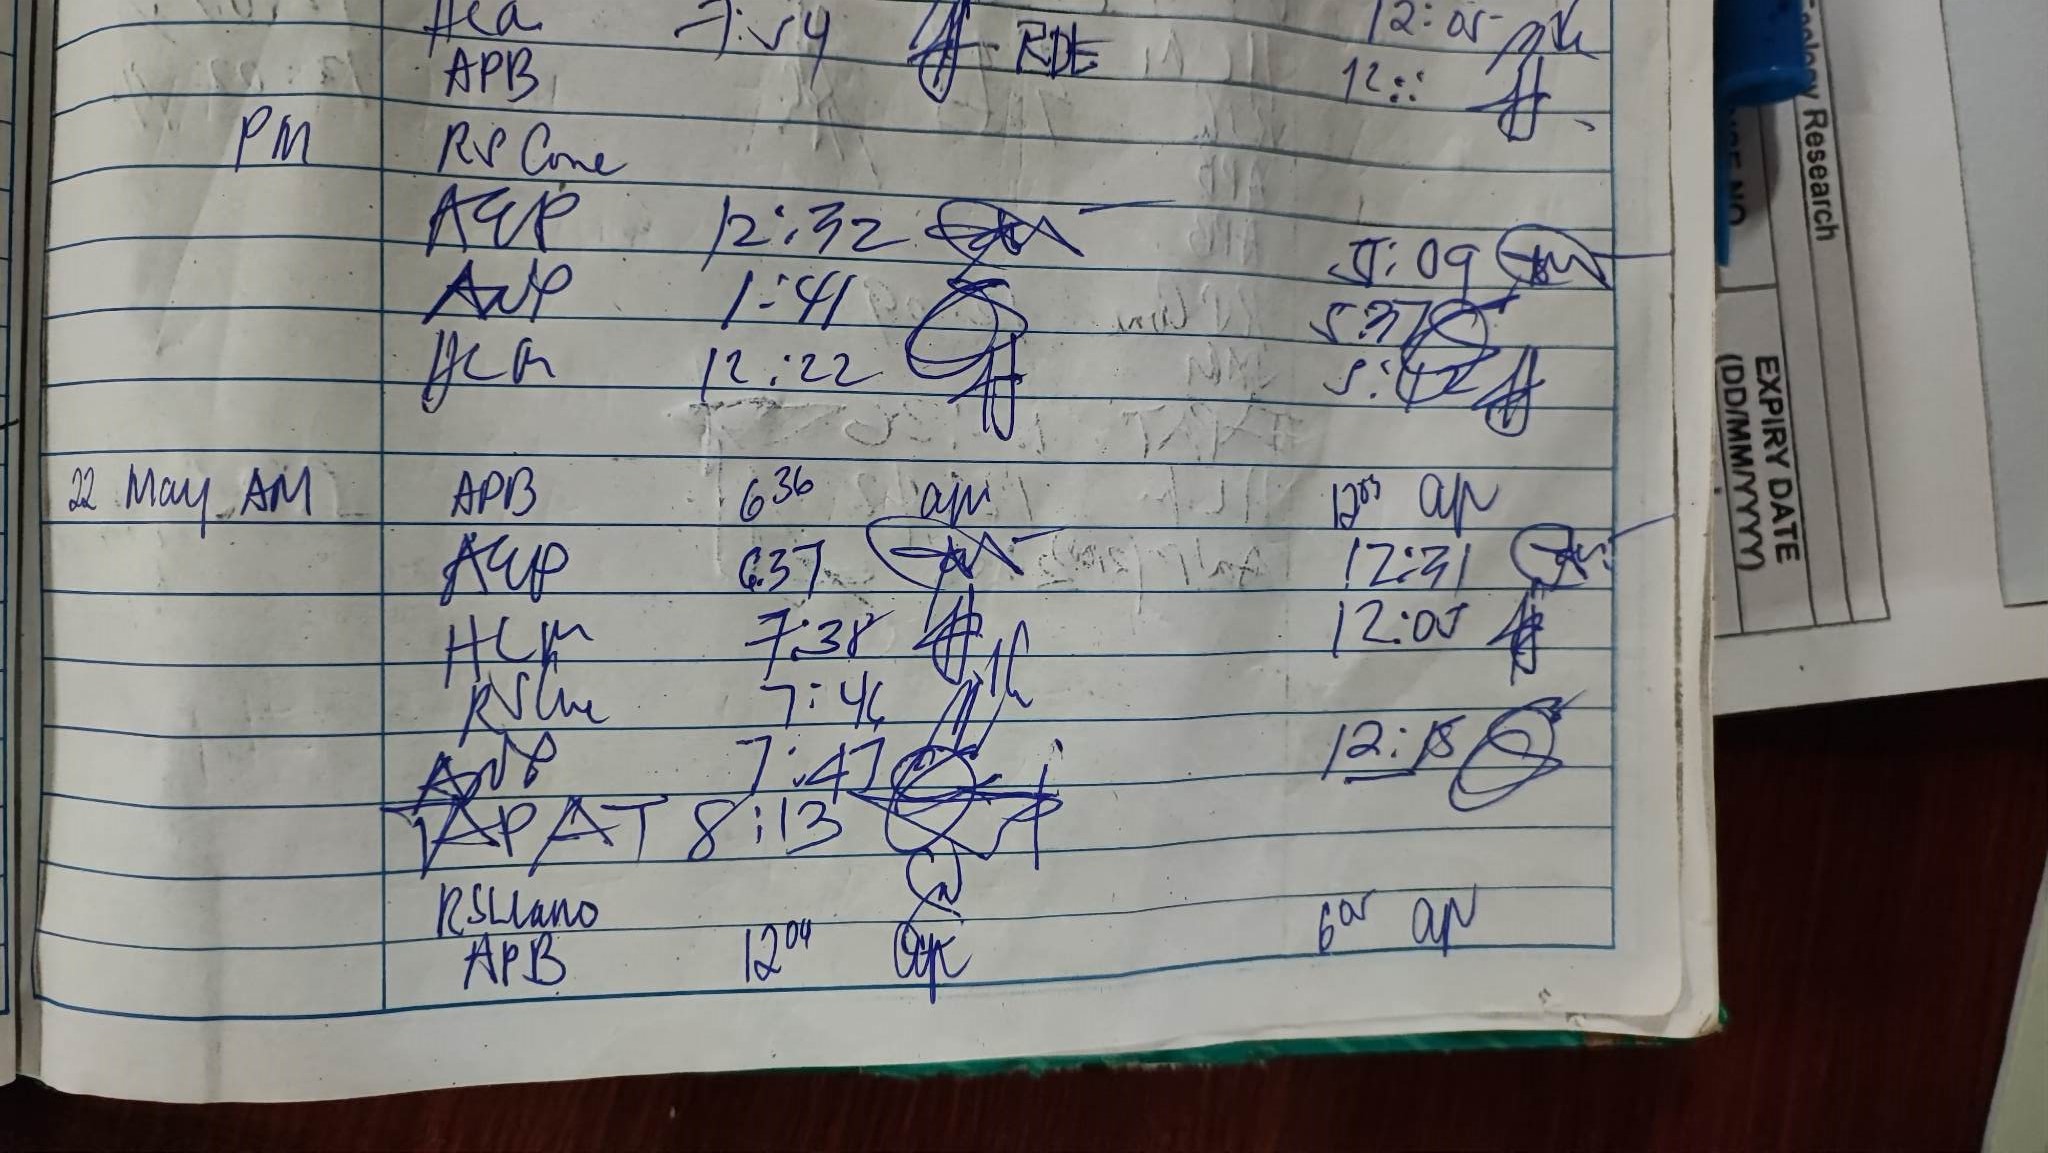 7:54 RDE 12:05
APB 12::
PM RS Cone
AEP 12:32 5:09
ANP 1:41 5:37
HCM 12:22 5:42
22 May AM APB 6 36 apu 12 03 ap
AEP 6:37 12:31
HCM 7:38 12:05
7:46
ANP 7:47 12:15
TAPAT 8:13
RSLlano
APB 12 04 ap 6 05 ap
Ecology Research
EXPIRY DATE
(DD/MM/YYYY)